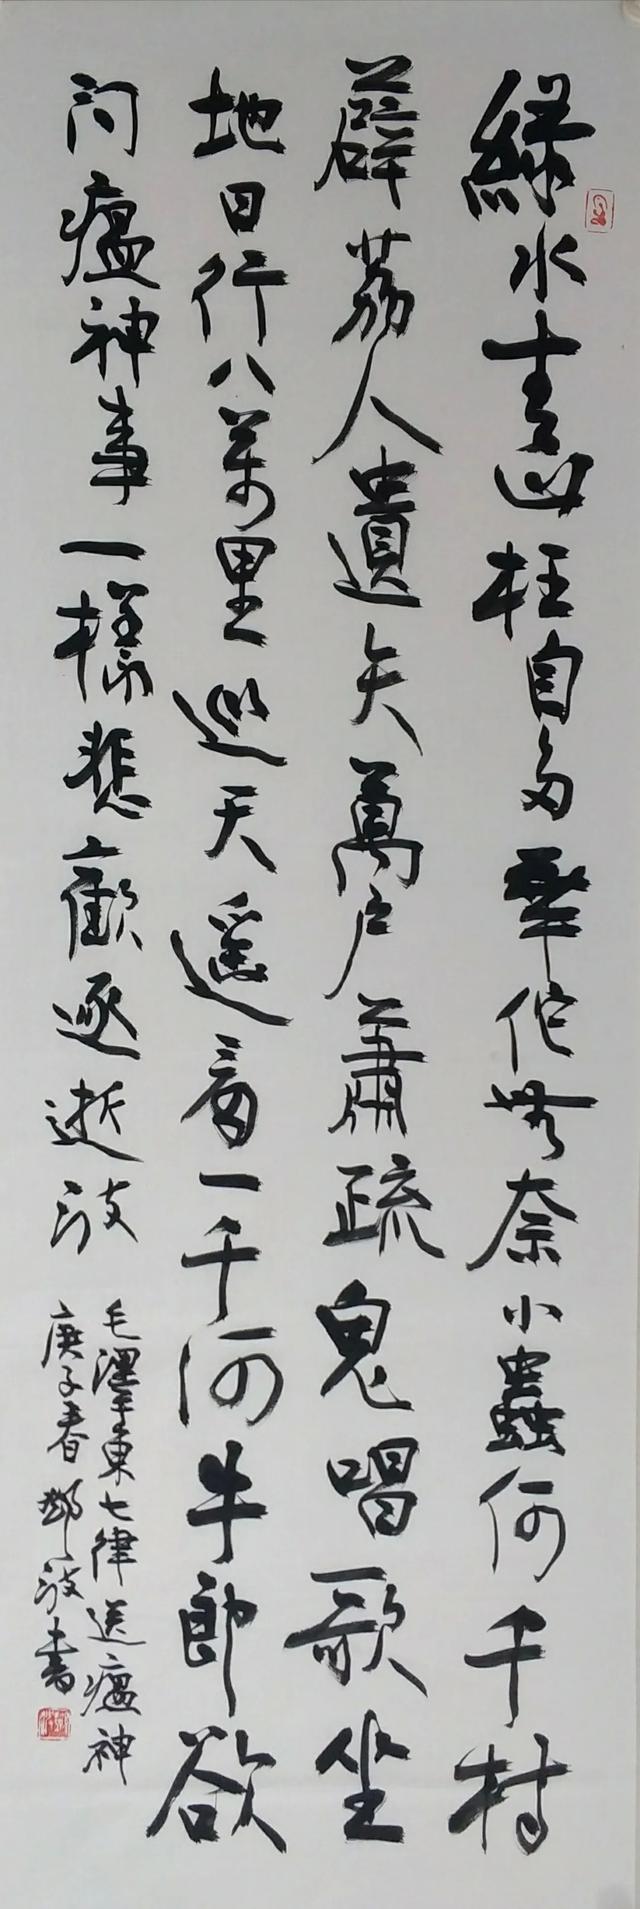 綠水青山枉自多華佗無奈小蟲何千村
薜荔人遺矢萬户蕭疏鬼唱歌坐
地日行八萬里巡天遥看一千河牛郎欲
問瘟神事一樣悲歡逐逝波
毛澤東七律送瘟神
庚子春波書